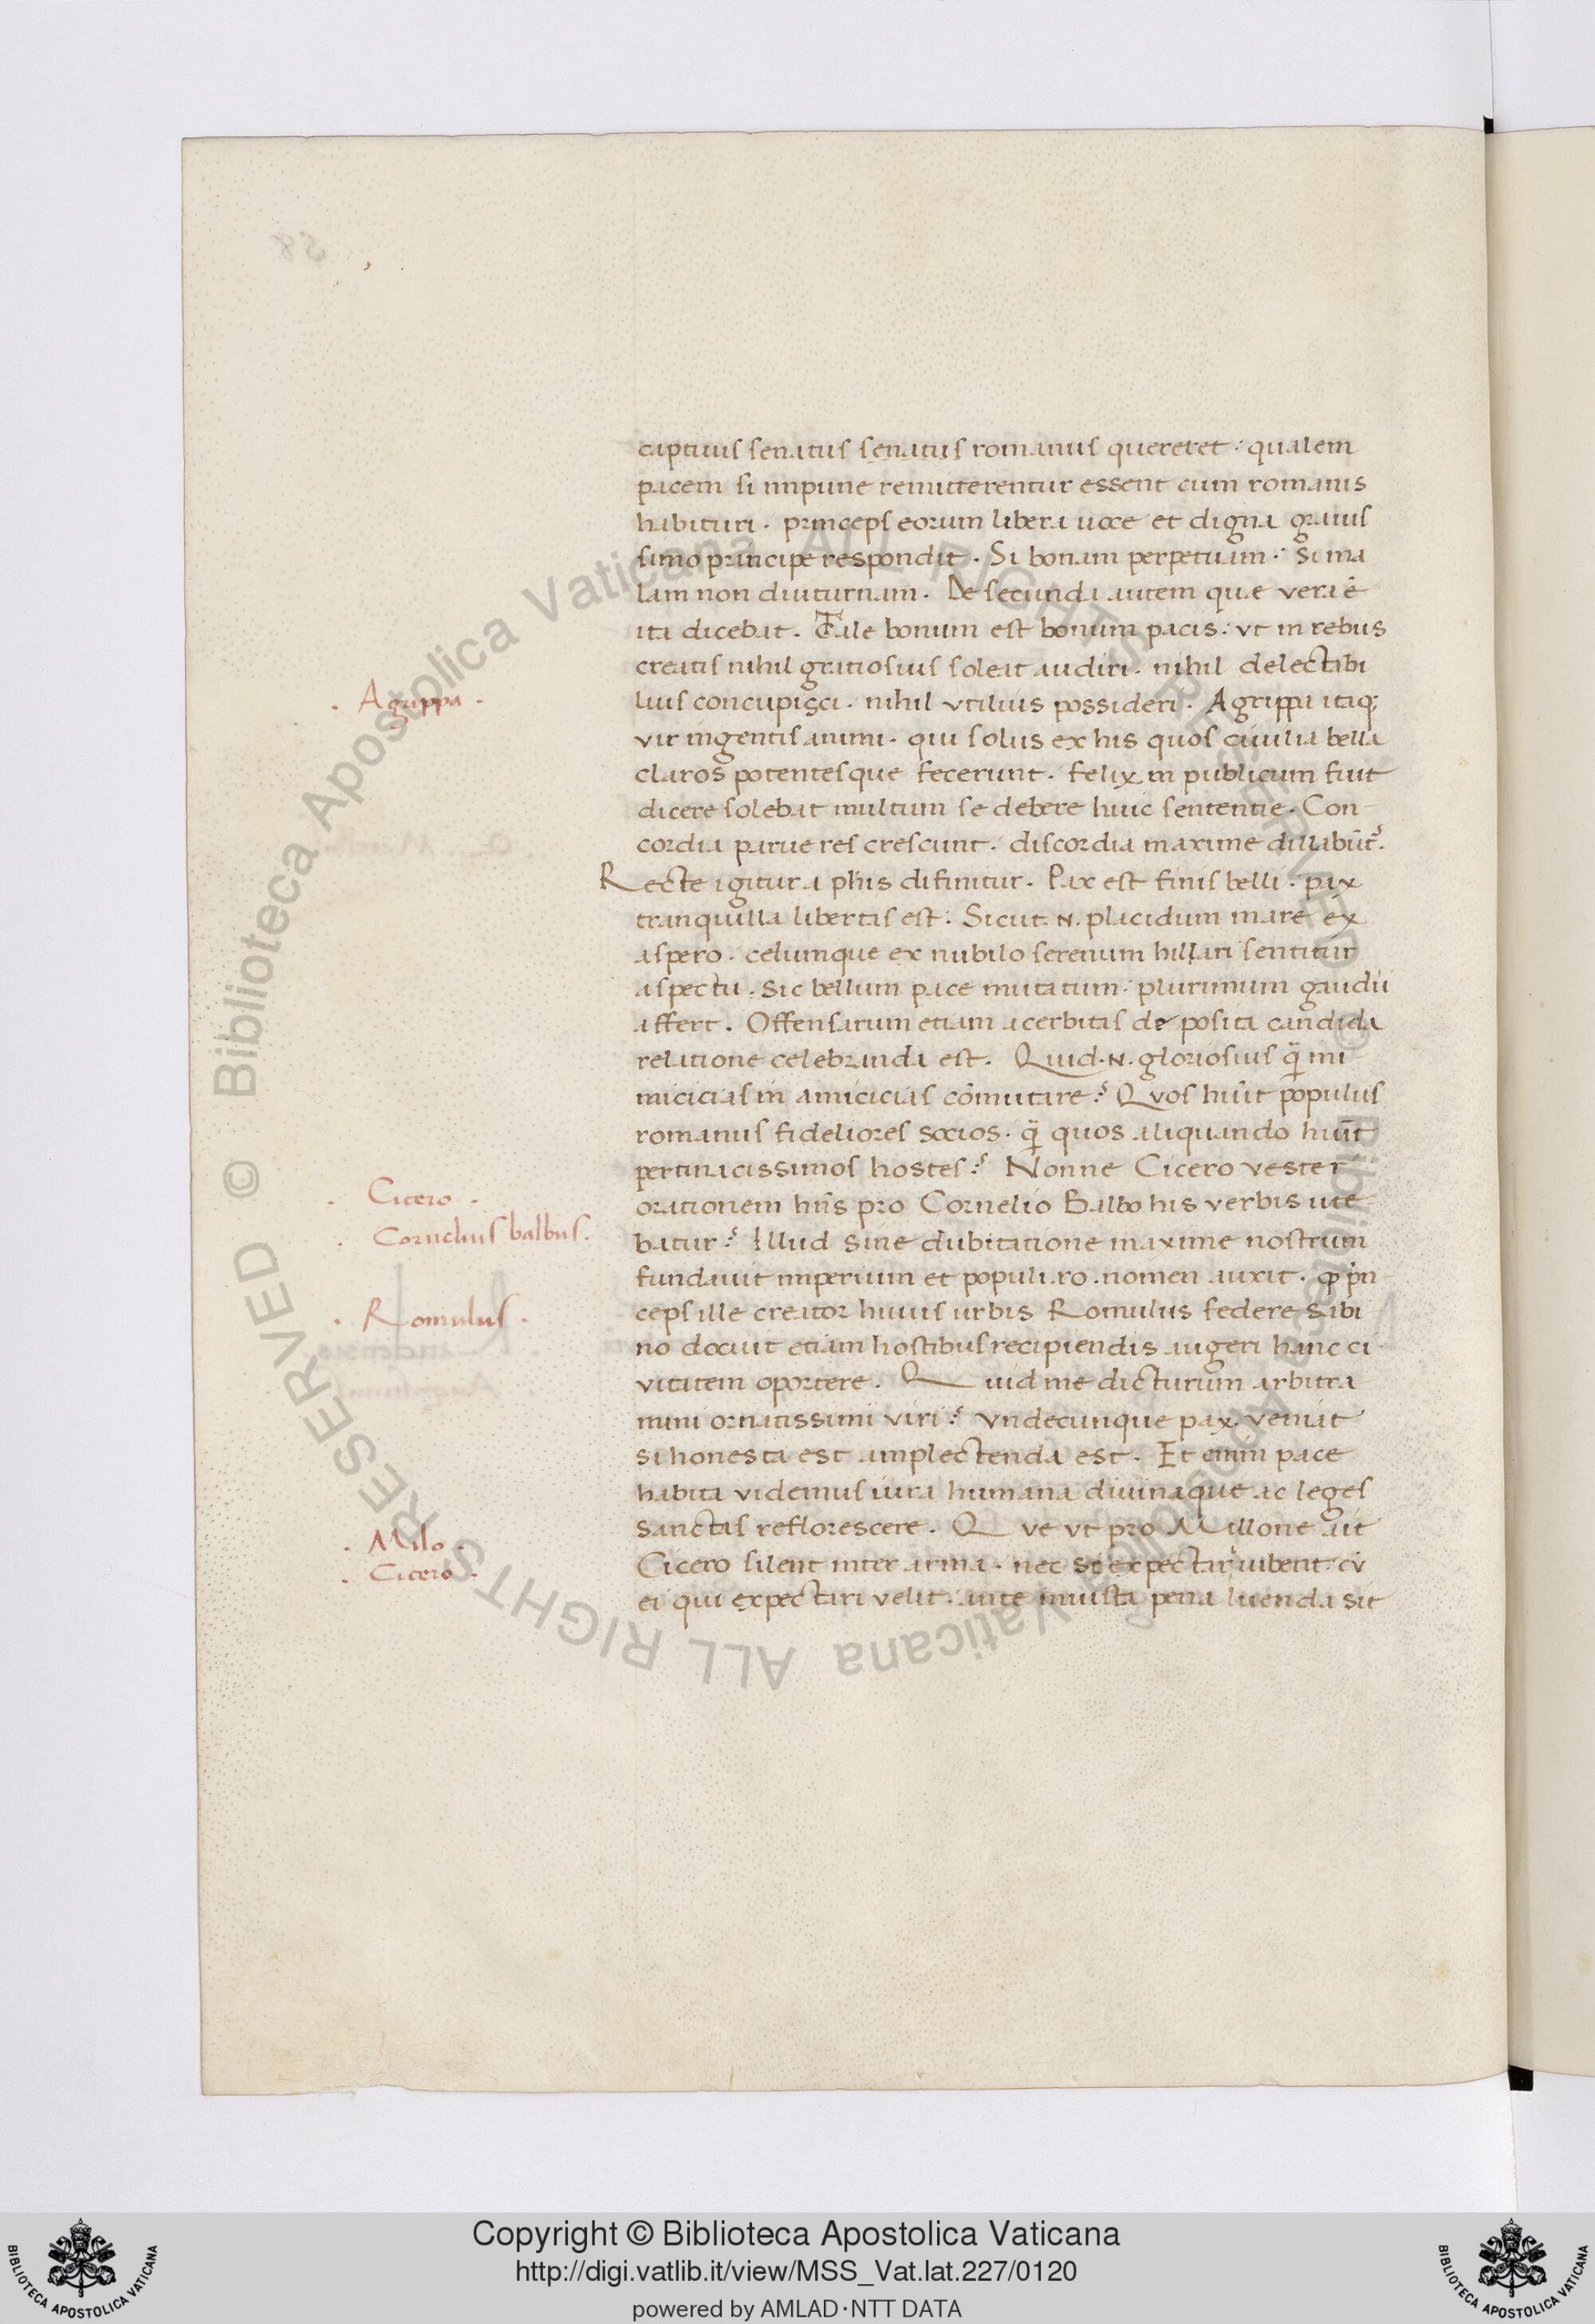 captiuis senatus senatus romanus quereret: qualem
pacem si impune remitterentur essent cum romanis
habituri. princeps eorum libera uoce et digna grauis
simo principe respondit. Si bonam perpetuam: Si ma
lam non diuturnam. De secunda autem que vera ē
ita dicebat. Tale bonum est bonum pacis: vt in rebus
creatis nihil gratiosius soleat audiri. nihil delectabi
. Agrippa .
lius concupisci. nihil vtilius possideri. Agrippa itaq;
vir ingentis animi. qui solus ex his quos ciuilia bella
claros potentesque fecerunt. felix in publicum fuit
dicere solebat multum se debere huic sententie. Con
cordia parue res crescunt. discordia maxime dillabūt͛.
Recte igitur a phis difinitur. Pax est finis belli. pax
tranquilla libertas est: Sicut .N. placidum mare ex
aspero. celumque ex nubilo serenum hillari sentitur
aspectu. Sic bellum pace mutatum. plurimum gaudii
affert. Offensarum etiam acerbitas de posita candida
relatione celebranda est. Quid .N. gloriosius q̈ ini
micicias in amicicias cōmutare? Quos hūit populus
romanus fideliores socios. q̈ quos aliquando hūit
pertinacissimos hostes? Nonne Cicero vester
. Cicero .
orationem hn̄s pro Cornelio Balbo his verbis ute
. Cornelius balbus.
batur? Illud sine dubitatione maxime nostrum
fundauit imperium et populi .ro. nomen auxit. ꝙ prin
ceps ille creator huius urbis Romulus federe Sabi
. Romulus .
no docuit etiam hostibus recipiendis augeri hanc ci
vitatem oportere. Quid me dicturum arbitra
mini ornatissimi viri? Vndecunque pax veniat
si honesta est amplectenda est. Et enim pace
habita videmus iura humana diuinaque ac leges
sanctas reflorescere. Que vt pro Millone ait
. Milo .
Cicero silent inter arma. nec se expectari iubent: cū
. Cicero .
ei qui expectari velit. ante iniusta pena luenda sit
Copyright © Biblioteca Apostolica Vaticana
http://digi.vatlib.it/view/MSS_Vat.lat.227/0120
powered by AMLAD·NTT DATA
BIBLIOTECA APOSTOLICA VATICANA
BIBLIOTECA APOSTOLICA VATICANA
© Biblioteca Apostolica Vaticana ALL RIGHTS RESERVED
© Biblioteca Apostolica Vaticana ALL RIGHTS RESERVED